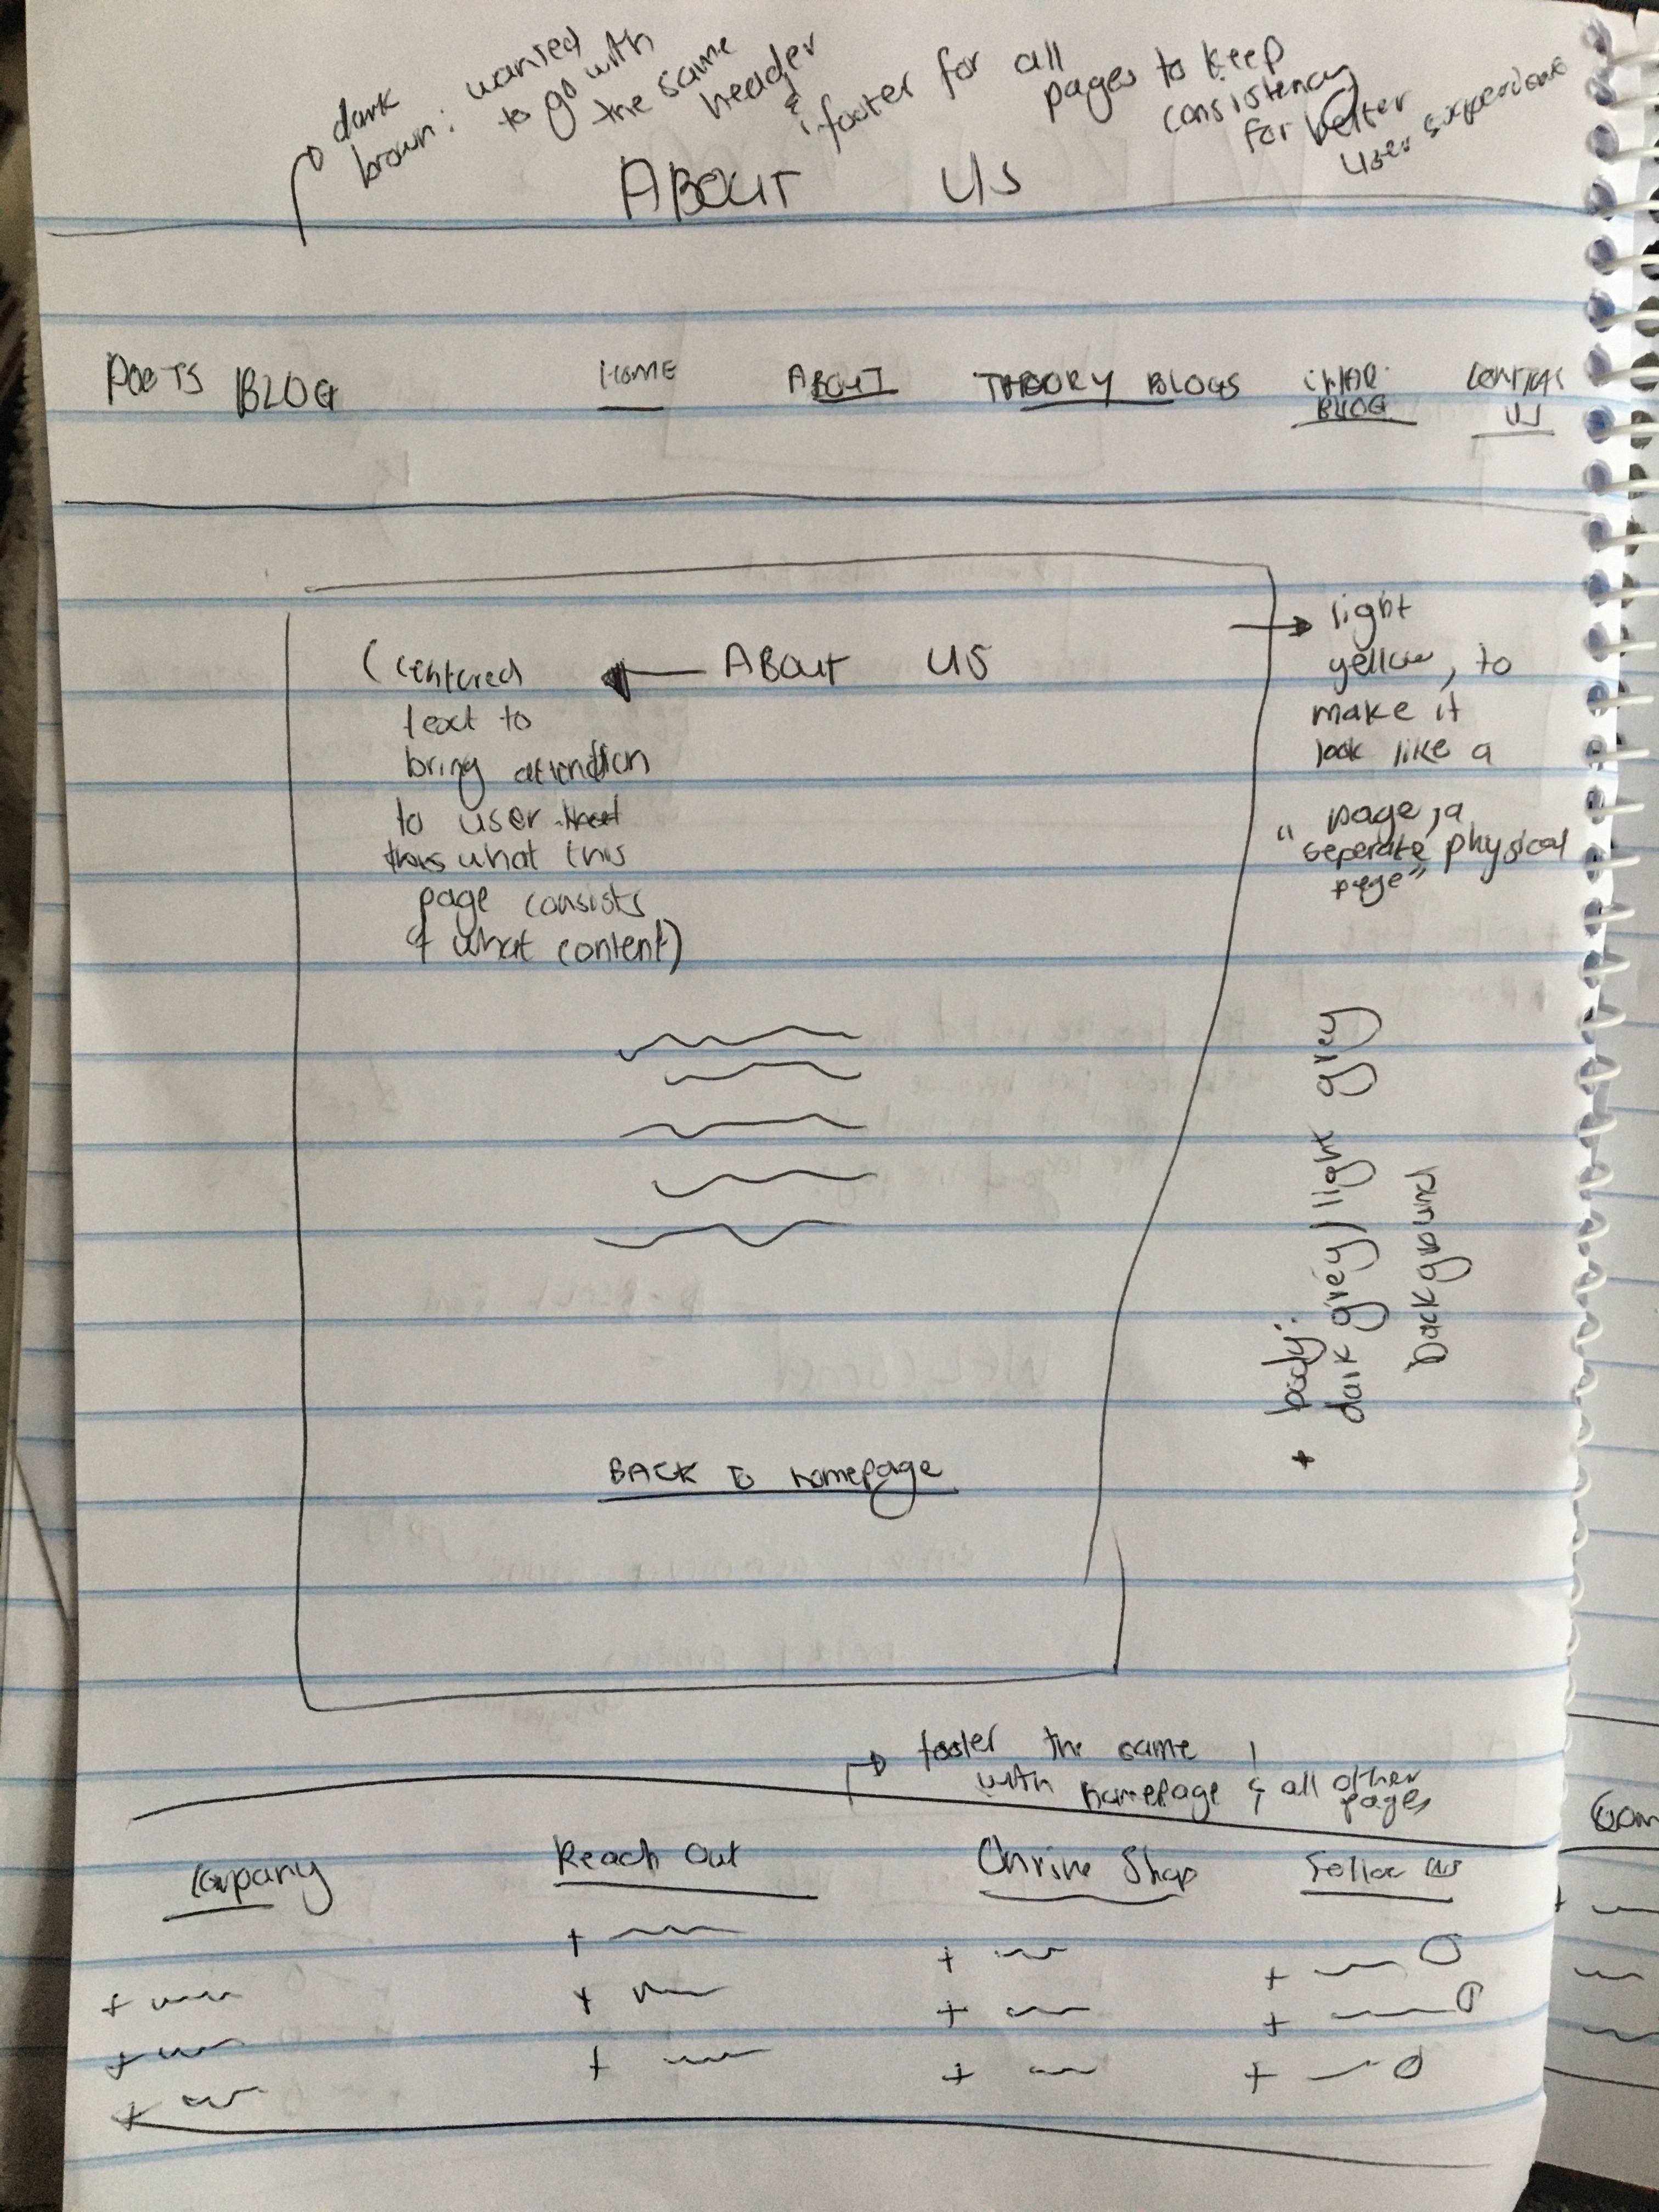 dark
brown: wanted
to go with
the same
header
& footer for all
pages to keep
consistency
for better
user experience
ABOUT US
POETS BLOG
HOME
ABOUT
THEORY BLOGS
BLOG
US
ABOUT US
(centered
text to
bring attention
to user
what this
page consists
& what content)
light
yellow, to
make it
look like a
" page, a
seperate physical
page"
+ body:
dark grey/light grey
background
BACK TO homepage
footer the same
with homepage & all other
pages
Company
Reach Out
Online Shop
Follow us